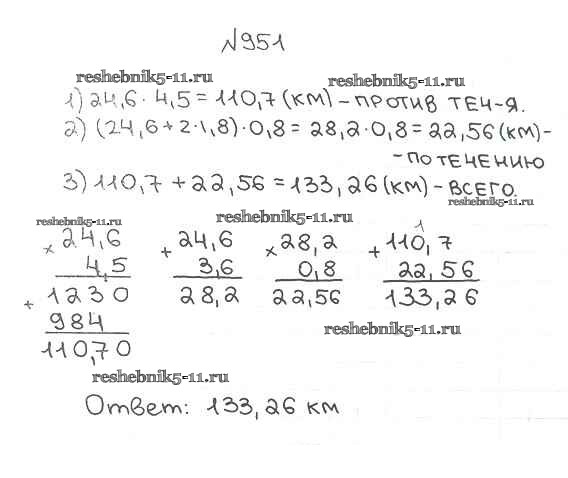 №951
reshebnik5-11.ru reshebnik5-11.ru
1) 24,6 · 4,5 = 110,7 (км) – против теч-я.
2) (24,6 + 2·1,8) · 0,8 = 28,2 · 0,8 = 22,56 (км) –
– по течению
3) 110,7 + 22,56 = 133,26 (км) – всего.
reshebnik5-11.ru
reshebnik5-11.ru reshebnik5-11.ru
× 24,6 + 24,6 × 28,2 + 110,7 1
4,5 3,6 0,8 22,56
+ 1230 28,2 22,56 133,26
984
reshebnik5-11.ru
110,70
reshebnik5-11.ru
Ответ: 133,26 км